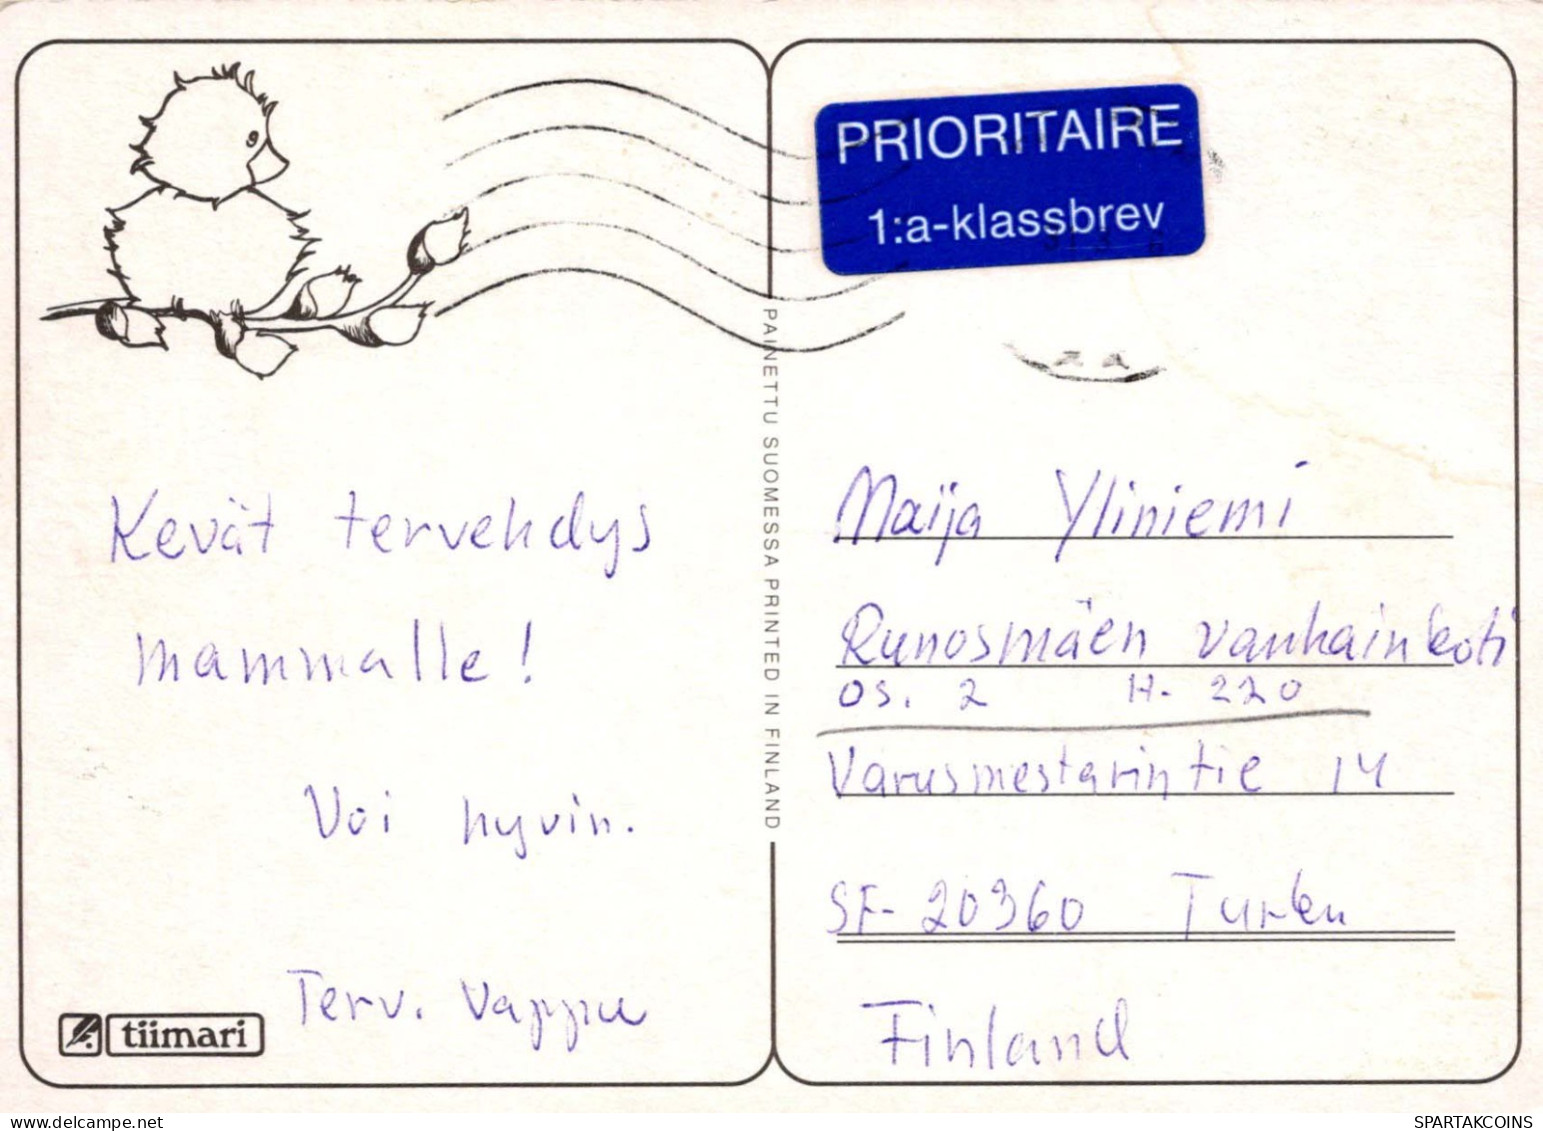 PRIORITAIRE
1:a-klassbrev
Kevät tervehdys
mammalle!
Voi hyvin.
Terv. Vappu
tiimari
PAINETTU SUOMESSA PRINTED IN FINLAND
Maija Yliniemi
Runosmäen vanhainkoti
os. 2 H. 220
Varusmestarintie 14
SF-20360 Turku
Finland
SPARTAKCOINS